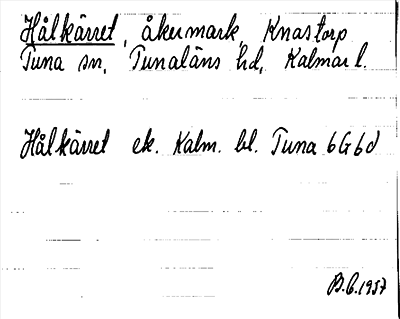 Hålkärret, åkermark, Knastorp
Tuna sn, Tunaläns hd, Kalmar l.
Hålkärret ek. Kalm. bl. Tuna 6G6d
B.C. 1937